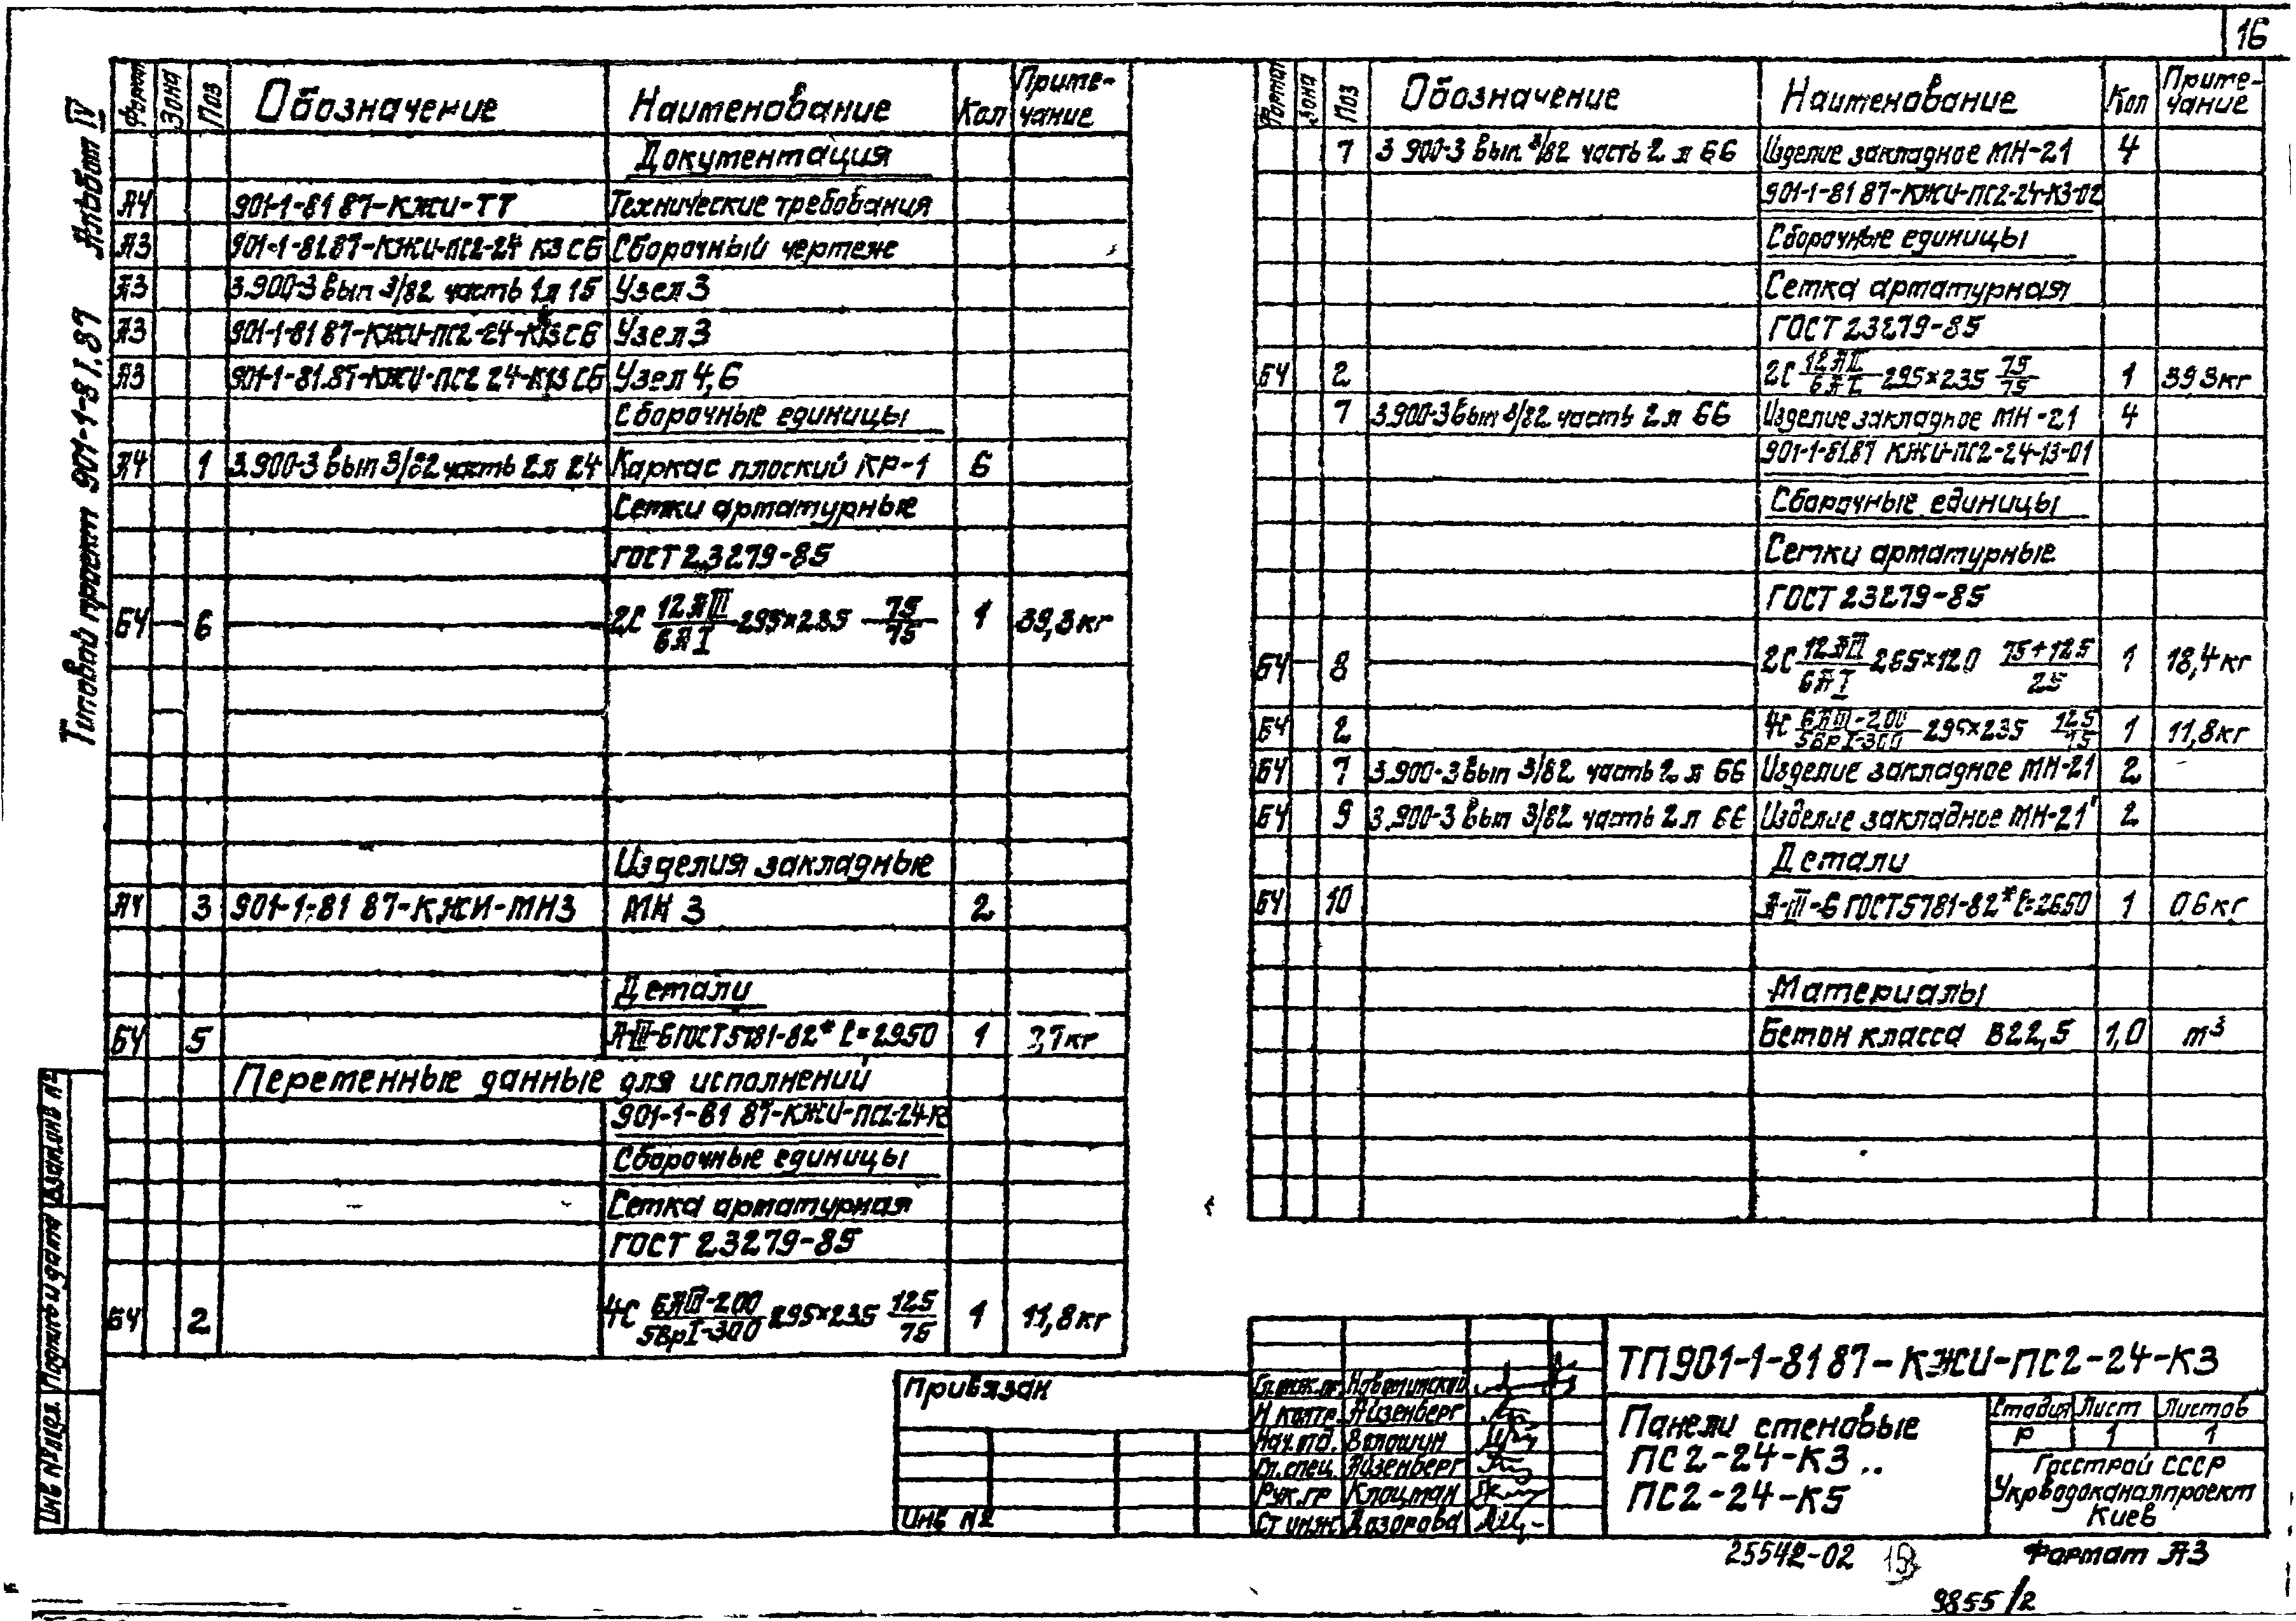 16
Альбом IV
Типовой проект 901-1-81.87
Формат Зона Поз Обозначение Наименование Кол Приме-чание
Документация
А4 901-1-81 87-КЖИ-ТТ Технические требования
А3 901-1-81.87-КЖИ-ПС2-24 К3 СБ Сборочный чертеж
А3 3.900-3 вып 3/82 часть 1 л 15 Узел 3
А3 901-1-81 87-КЖИ-ПС2-24-К13 СБ Узел 3
А3 901-1-81.87-КЖИ-ПС2 24-К13 СБ Узел 4,6
Сборочные единицы
А4 1 3.900-3 вып 3/82 часть 2 л 24 Каркас плоский КР-1 6
Сетки арматурные
ГОСТ 23279-85
БЧ 6 2С 12АIII/6АI 295×235 75/75 1 39,3кг
Изделия закладные
А4 3 901-1-81 87-КЖИ-МН3 МН 3 2
Детали
БЧ 5 А-III-6 ГОСТ 5781-82* ℓ=2950 1 ,7кг
Переменные данные для исполнений
901-1-81 87-КЖИ-ПС2-24-К
Сборочные единицы
Сетка арматурная
ГОСТ 23279-85
БЧ 2 4С 6АIII-200/5ВрI-300 295×235 125/75 1 11,8кг
Формат Зона Поз Обозначение Наименование Кол Приме-чание
7 3 900-3 вып. 3/82 часть 2 л 66 Изделие закладное МН-21 4
901-1-81 87-КЖИ-ПС2-24-К3-02
Сборочные единицы
Сетка арматурная
ГОСТ 23279-85
БЧ 2 2С 12АIII/6АI 295×235 75/75 1 39 3кг
7 3.900-3 вып 3/82 часть 2 л 66 Изделие закладное МН-21 4
901-1-81.87 КЖИ-ПС2-24-13-01
Сборочные единицы
Сетки арматурные
ГОСТ 23279-85
БЧ 8 2С 12АIII/6АI 265×120 75+125/25 1 18,4кг
БЧ 2 4С 6АIII-200/5ВрI-300 295×235 125/75 1 11,8кг
БЧ 7 3.900-3 вып 3/82 часть 2 л 66 Изделие закладное МН-21 2
БЧ 9 3.900-3 вып 3/82 часть 2 л 66 Изделие закладное МН-21' 2
Детали
БЧ 10 А-III-6 ГОСТ 5781-82* ℓ=2650 1 0 6кг
Материалы
Бетон класса В22,5 1,0 м³
Взам.инв №
Подпись и дата
Инв № подл.
Привязан
Инв №
Гл.инж.пр. Новоминский
Н контр. Айзенберг
Нач.отд. Волошин
Гл.спец. Айзенберг
Рук.гр Клоцман
Ст инж Дазорова
ТП901-1-81 87-КЖИ-ПС2-24-К3
Панели стеновые
ПС2-24-К3..
ПС2-24-К5
Стадия Лист Листов
Р 1 1
Госстрой СССР
Укрводоканалпроект
Киев
25542-02 19 Формат А3
9855/2